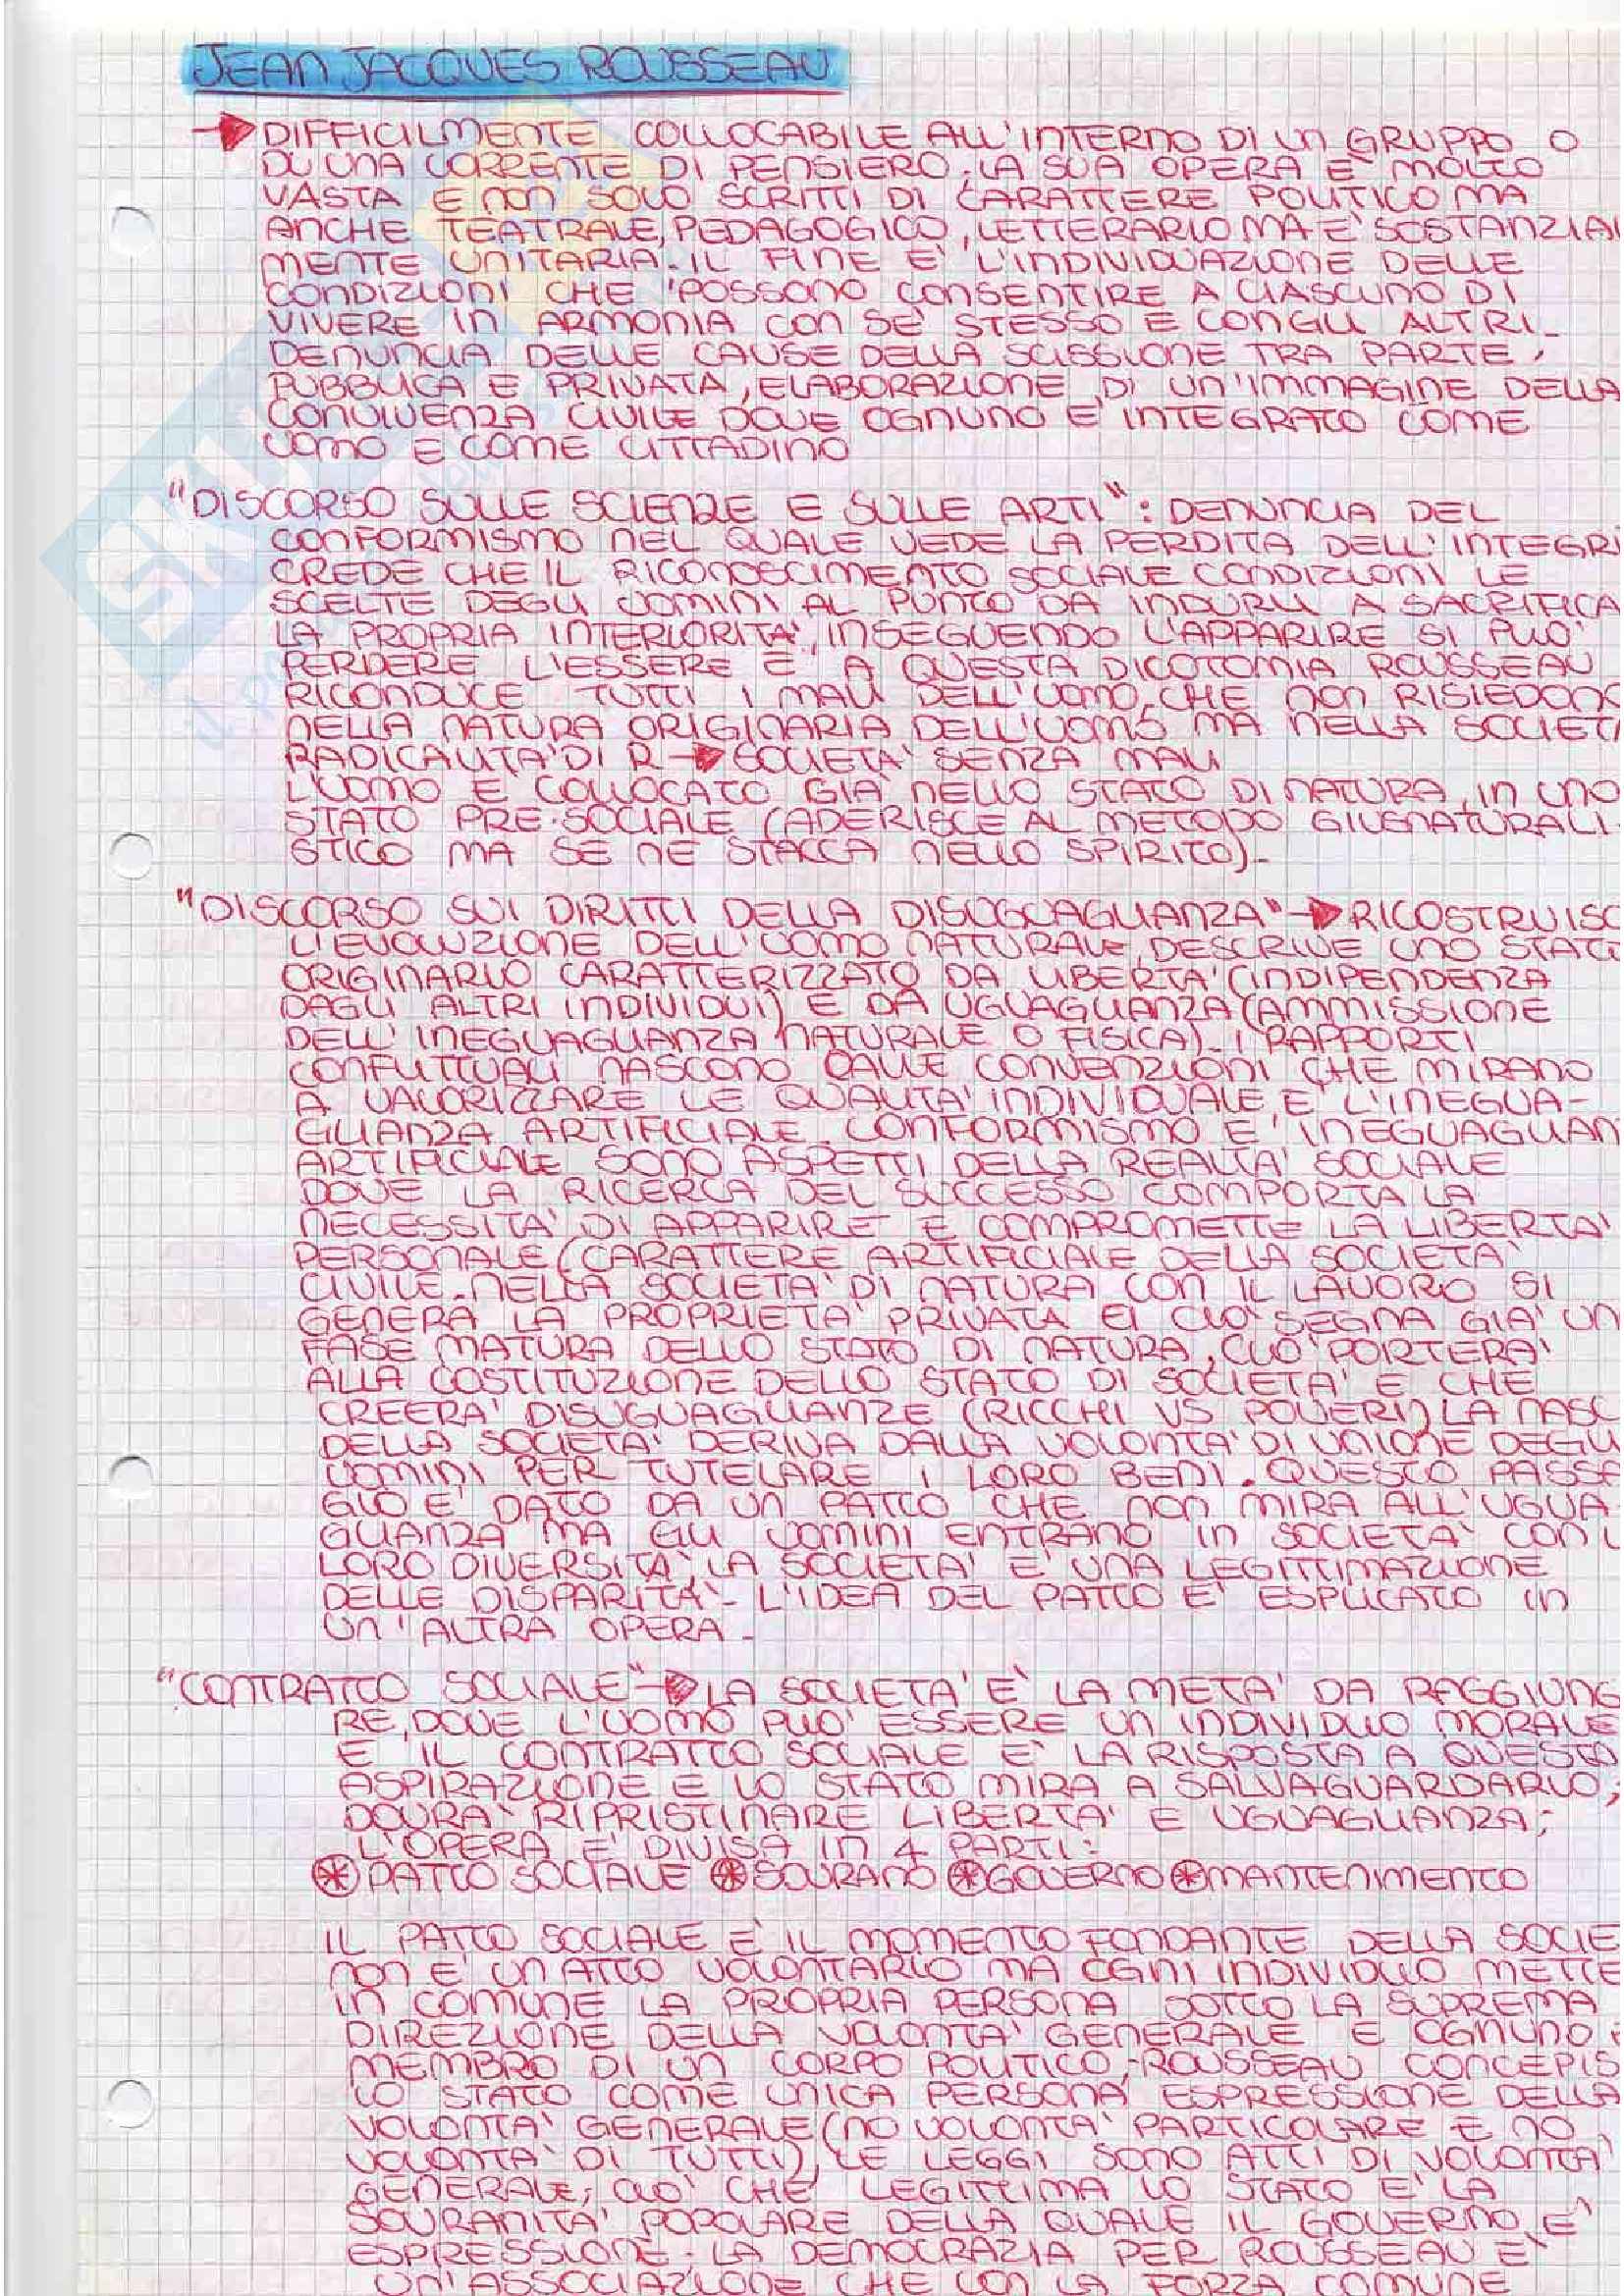 JEAN JACQUES ROUSSEAU
DIFFICILMENTE COLLOCABILE ALL'INTERNO DI UN GRUPPO O
DI UNA CORRENTE DI PENSIERO. LA SUA OPERA E' MOLTO
VASTA E NON SOLO SCRITTI DI CARATTERE POLITICO MA
ANCHE TEATRALE, PEDAGOGICO, LETTERARIO MA E' SOSTANZIAL
MENTE UNITARIA. IL FINE E' L'INDIVIDUAZIONE DELLE
CONDIZIONI CHE POSSONO CONSENTIRE A CIASCUNO DI
VIVERE IN ARMONIA CON SE' STESSO E CON GLI ALTRI.
DENUNCIA DELLE CAUSE DELLA SCISSIONE TRA PARTE
PUBBLICA E PRIVATA, ELABORAZIONE DI UN'IMMAGINE DELLA
CONVIVENZA CIVILE DOVE OGNUNO E' INTEGRATO COME
UOMO E COME CITTADINO
"DISCORSO SULLE SCIENZE E SULLE ARTI": DENUNCIA DEL
CONFORMISMO NEL QUALE VEDE LA PERDITA DELL'INTEGRI
CREDE CHE IL RICONOSCIMENTO SOCIALE CONDIZIONI LE
SCELTE DEGLI UOMINI AL PUNTO DA INDURLI A SACRIFICA
LA PROPRIA INTERIORITA', INSEGUENDO L'APPARIRE SI PUO'
PERDERE L'ESSERE E A QUESTA DICOTOMIA ROUSSEAU
RICONDUCE TUTTI I MALI DELL'UOMO, CHE NON RISIEDONO
NELLA NATURA ORIGINARIA DELL'UOMO MA NELLA SOCIETA
RADICALITA' DI R → SOCIETA' SENZA MALI
L'UOMO E' COLLOCATO GIA' NELLO STATO DI NATURA, IN UNO
STATO PRE-SOCIALE (ADERISCE AL METODO GIUSNATURALI-
STICO MA SE NE STACCA NELLO SPIRITO).
"DISCORSO SUI DIRITTI DELLA DISUGUAGLIANZA" → RICOSTRUISC
L'EVOLUZIONE DELL'UOMO NATURALE, DESCRIVE UNO STATO
ORIGINARIO CARATTERIZZATO DA LIBERTA' (INDIPENDENZA
DAGLI ALTRI INDIVIDUI) E DA UGUAGLIANZA (AMMISSIONE
DELL'INEGUAGLIANZA NATURALE O FISICA). I RAPPORTI
CONFLITTUALI NASCONO DALLE CONVENZIONI CHE MIRANO
A VALORIZZARE LE QUALITA' INDIVIDUALE, E' L'INEGUA-
GLIANZA ARTIFICIALE. CONFORMISMO E INEGUAGLIAN
ARTIFICIALE SONO ASPETTI DELLA REALTA' SOCIALE
DOVE LA RICERCA DEL SUCCESSO COMPORTA LA
NECESSITA' DI APPARIRE E COMPROMETTE LA LIBERTA'
PERSONALE (CARATTERE ARTIFICIALE DELLA SOCIETA'
CIVILE. NELLA SOCIETA' DI NATURA CON IL LAVORO SI
GENERA LA PROPRIETA' PRIVATA E CIO' SEGNA GIA' UN
FASE MATURA DELLO STATO DI NATURA, CIO' PORTERA'
ALLA COSTITUZIONE DELLO STATO DI SOCIETA' E CHE
CREERA' DISUGUAGLIANZE (RICCHI VS POVERI) LA NASC
DELLA SOCIETA' DERIVA DALLA VOLONTA' DI UNIONE DEGLI
UOMINI PER TUTELARE I LORO BENI. QUESTO PASSA
GIO E' DATO DA UN PATTO CHE NON MIRA ALL'UGUA
GLIANZA MA GLI UOMINI ENTRANO IN SOCIETA' CON L
LORO DIVERSITA', LA SOCIETA' E' UNA LEGITTIMAZIONE
DELLE DISPARITA'. L'IDEA DEL PATTO E' ESPLICATO IN
UN'ALTRA OPERA.
"CONTRATTO SOCIALE" → LA SOCIETA' E' LA META' DA RAGGIUNGE
RE, DOVE L'UOMO PUO' ESSERE UN INDIVIDUO MORALE
E IL CONTRATTO SOCIALE E' LA RISPOSTA A QUESTA
ASPIRAZIONE E LO STATO MIRA A SALVAGUARDARLO;
DOVRA' RIPRISTINARE LIBERTA' E UGUAGLIANZA;
L'OPERA E' DIVISA IN 4 PARTI:
PATTO SOCIALE SOVRANO GOVERNO MANTENIMENTO
IL PATTO SOCIALE E' IL MOMENTO FONDANTE DELLA SOCIE
NON E' UN ATTO VOLONTARIO MA OGNI INDIVIDUO METTE
IN COMUNE LA PROPRIA PERSONA SOTTO LA SUPREMA
DIREZIONE DELLA VOLONTA' GENERALE E OGNUNO
MEMBRO DI UN CORPO POLITICO; ROUSSEAU CONCEPIS
LO STATO COME UNICA PERSONA ESPRESSIONE DELLA
VOLONTA' GENERALE (NO VOLONTA' PARTICOLARE E NO
VOLONTA' DI TUTTI), LE LEGGI SONO ATTI DI VOLONTA'
GENERALE; CIO' CHE LEGITTIMA LO STATO E' LA
SOVRANITA' POPOLARE DELLA QUALE IL GOVERNO E'
ESPRESSIONE. LA DEMOCRAZIA PER ROUSSEAU E'
UN'ASSOCIAZIONE CHE CON LA FORZA COMUNE